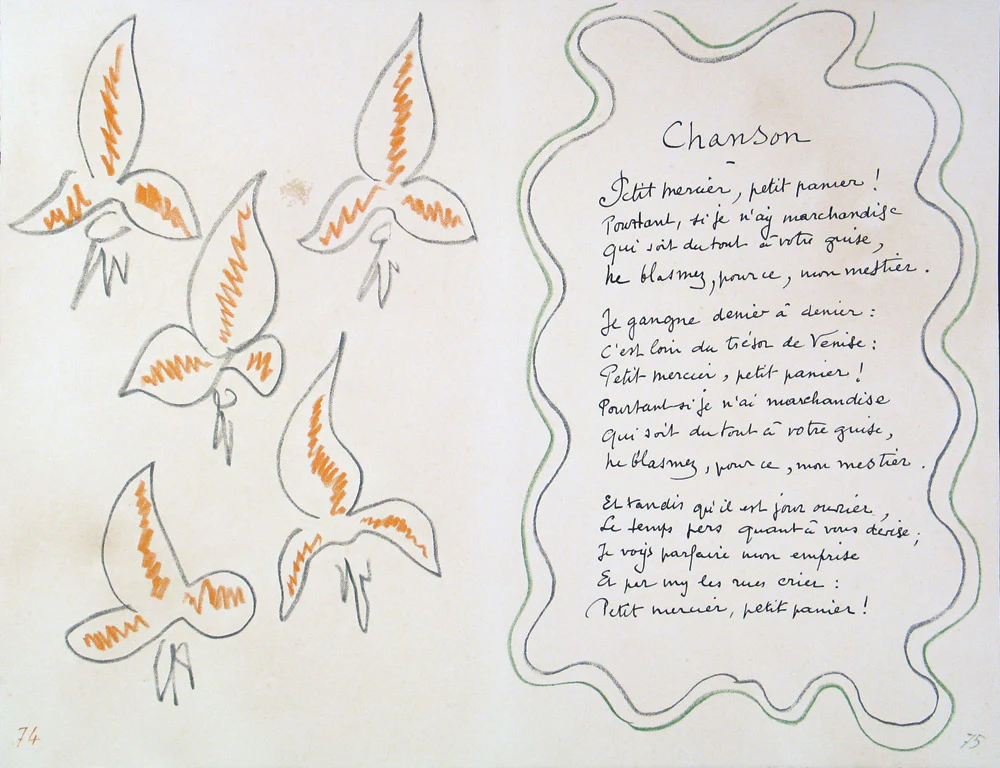 74
Chanson
Petit mercier, petit panier !
Pourtant, si je n'ay marchandise
qui soit du tout à votre guise,
ne blasmez, pour ce, mon mestier.
Je gangne denier à denier :
C'est loin du trésor de Venise :
Petit mercier, petit panier !
Pourtant si je n'ai marchandise
qui soit du tout à votre guise,
ne blasmez, pour ce, mon mestier.
Et tandis qu'il est jour ouvrier,
Le temps pers quant à vous devise ;
Je voys parfaire mon emprise
Et per my les rues crier :
Petit mercier, petit panier !
75